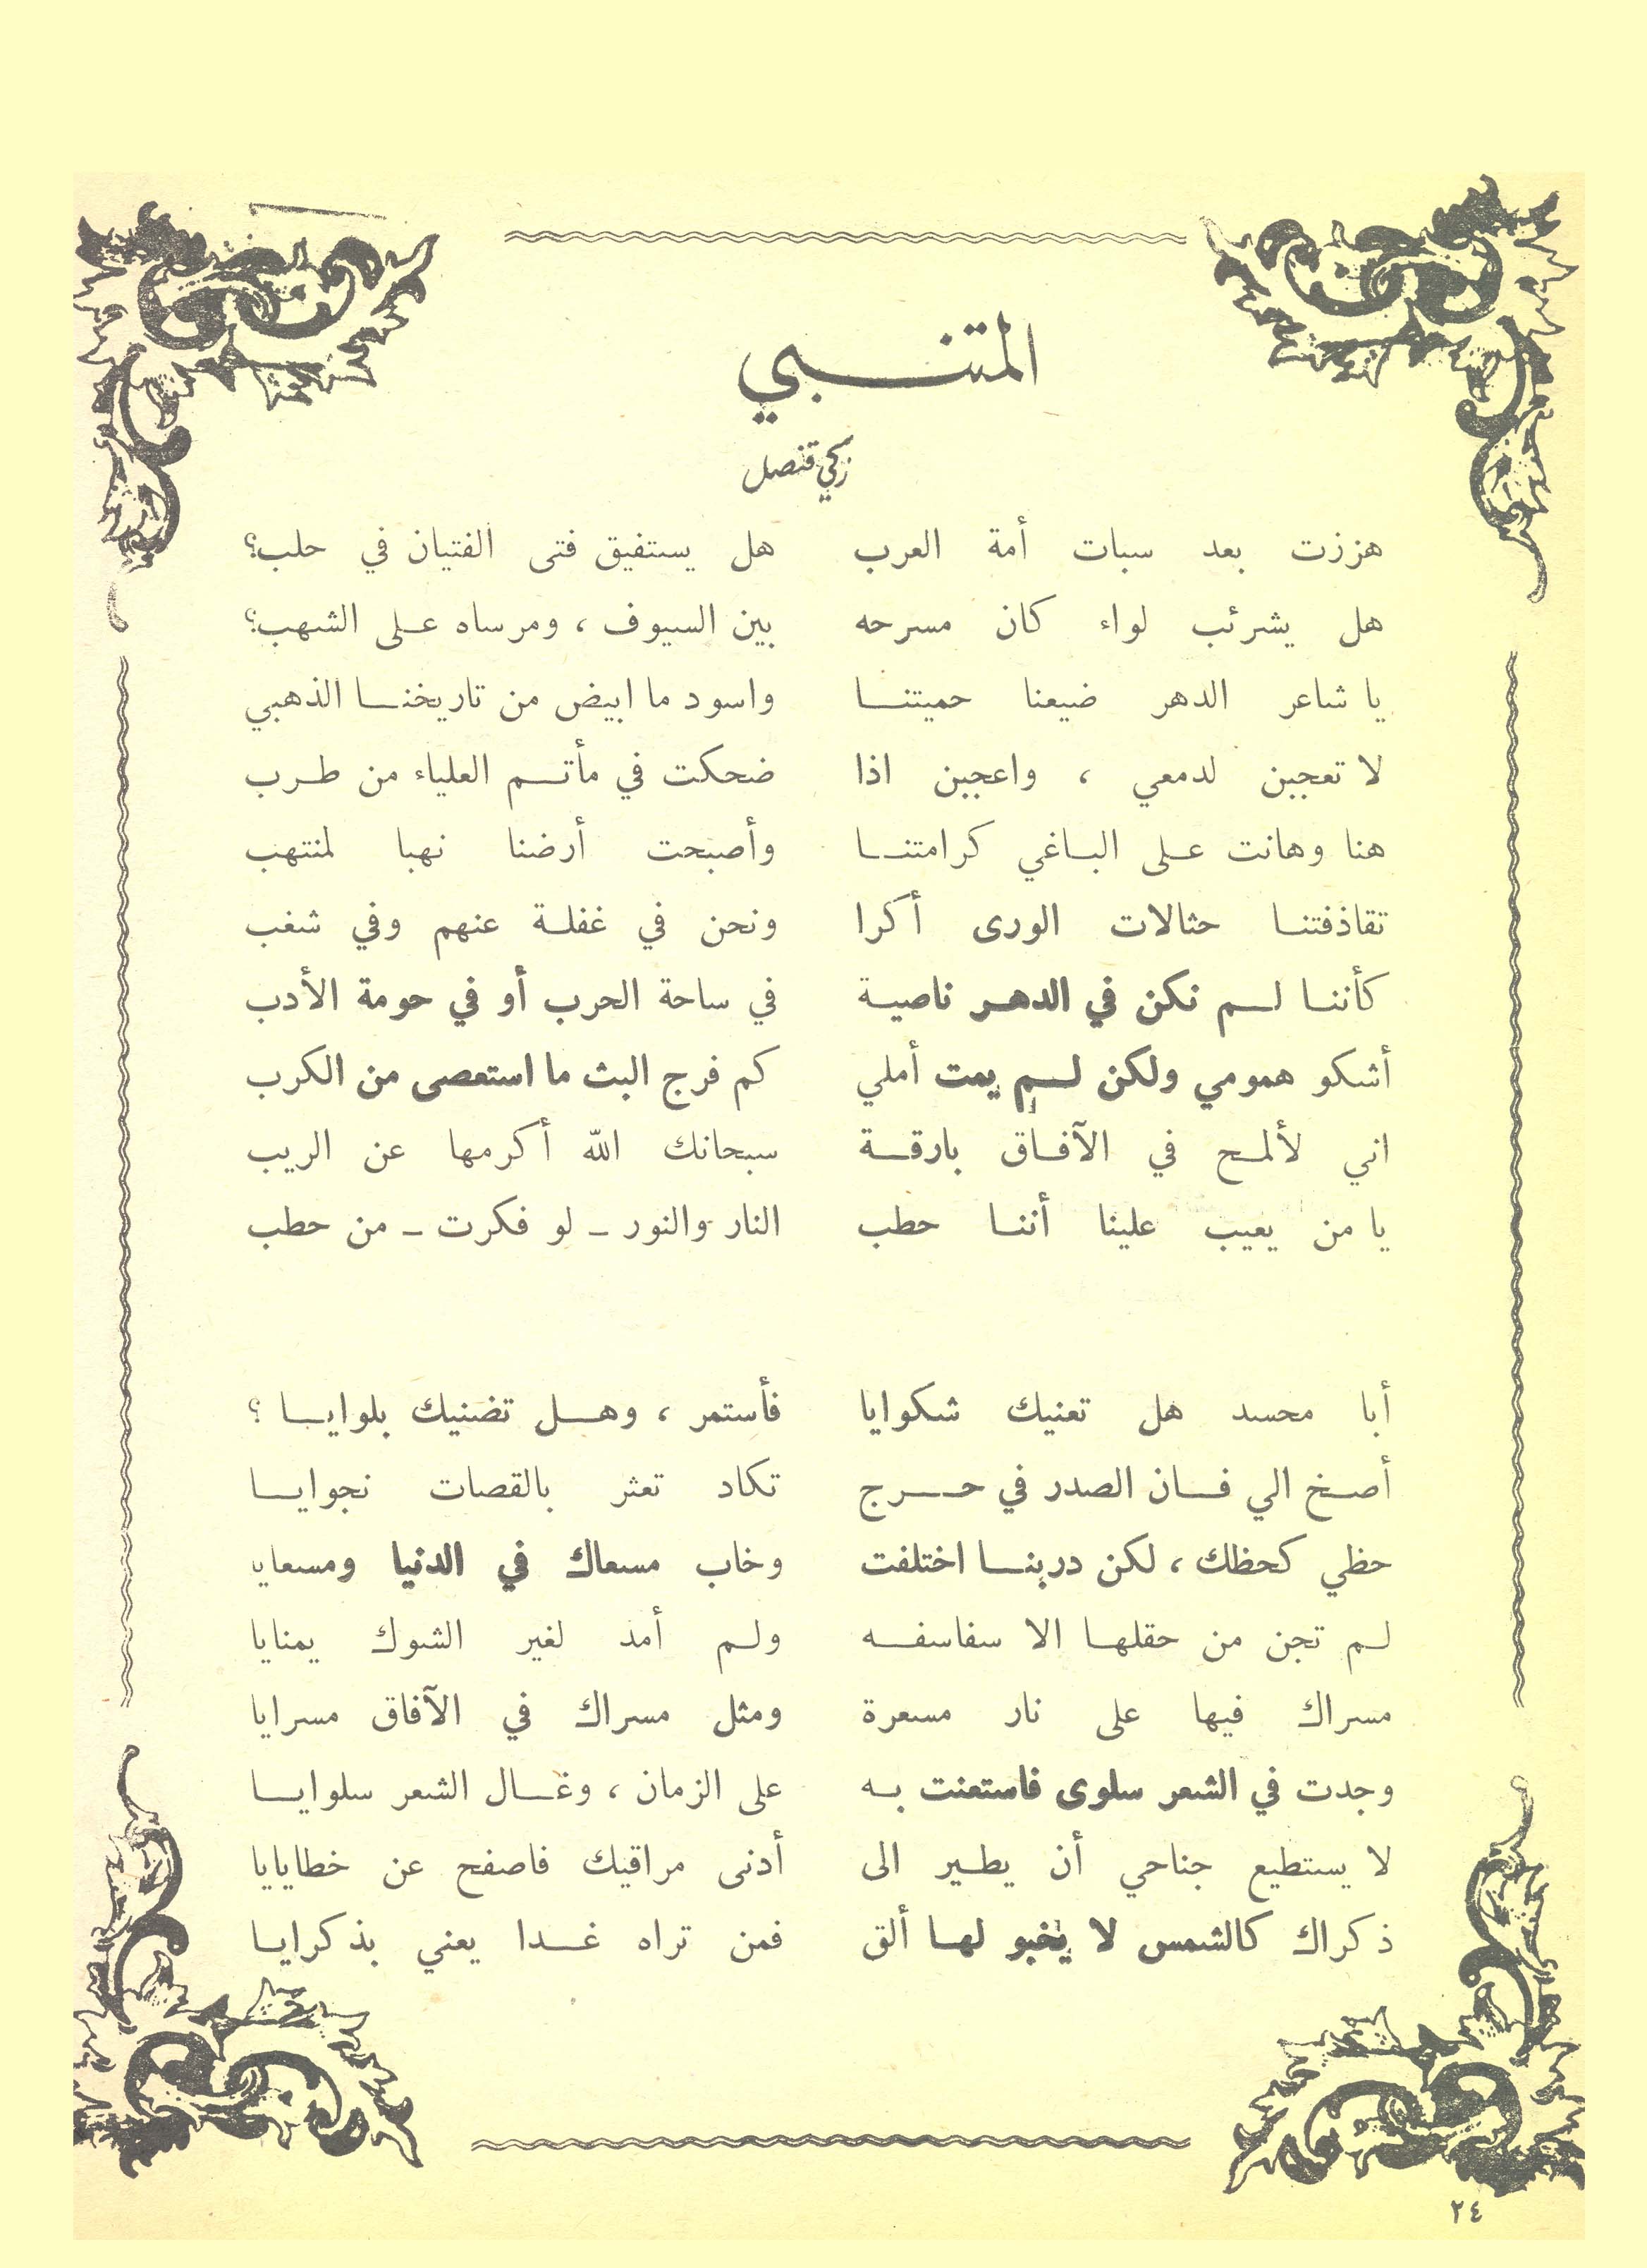 المتنبي
زكي قنصل
هززت بعد سبات أمة العرب هل يستفيق فتى الفتيان في حلب؟
هل يشرئب لواء كان مسرحه بين السيوف ، ومرساه على الشهب؟
يا شاعر الدهر ضيعنا حميتنا واسود ما ابيض من تاريخنا الذهبي
لا تعجبن لدمعي ، واعجبن اذا ضحكت في مأتم العلياء من طرب
هنا وهانت على الباغي كرامتنا وأصبحت أرضنا نهبا لمنتهب
تقاذفتنا حثالات الورى أكرا ونحن في غفلة عنهم وفي شغب
كأننا لم نكن في الدهر ناصية في ساحة الحرب أو في حومة الأدب
أشكو همومي ولكن لم يمت أملي كم فرج البث ما استعصى من الكرب
اني لألمح في الآفاق بارقة سبحانك الله أكرمها عن الريب
يا من يعيب علينا أننا حطب النار والنور ـ لو فكرت ـ من حطب
أبا محسد هل تعنيك شكوايا فأستمر ، وهل تضنيك بلوايا ؟
أصخ الي فان الصدر في حرج تكاد تعثر بالقصات نجوايا
حظي كحظك ، لكن دربنا اختلفت وخاب مسعاك في الدنيا ومسعايا
لم تجن من حقلها الا سفاسفه ولم أمد لغير الشوك يمنايا
مسراك فيها على نار مسعرة ومثل مسراك في الآفاق مسرايا
وجدت في الشعر سلوى فاستعنت به على الزمان ، وغال الشعر سلوايا
لا يستطيع جناحي أن يطير الى أدنى مراقيك فاصفح عن خطايايا
ذكراك كالشمس لا يخبو لها ألق فمن تراه غدا يعني بذكرايا
٢٤